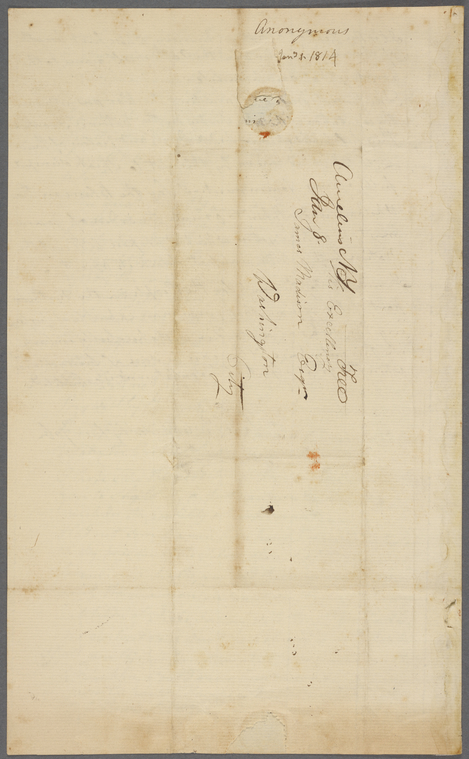 Anonymous
Jany 1. 1814
Aurelius NY
Jan 8.
Free
His Excellency
James Madison Esqr
Washington
City